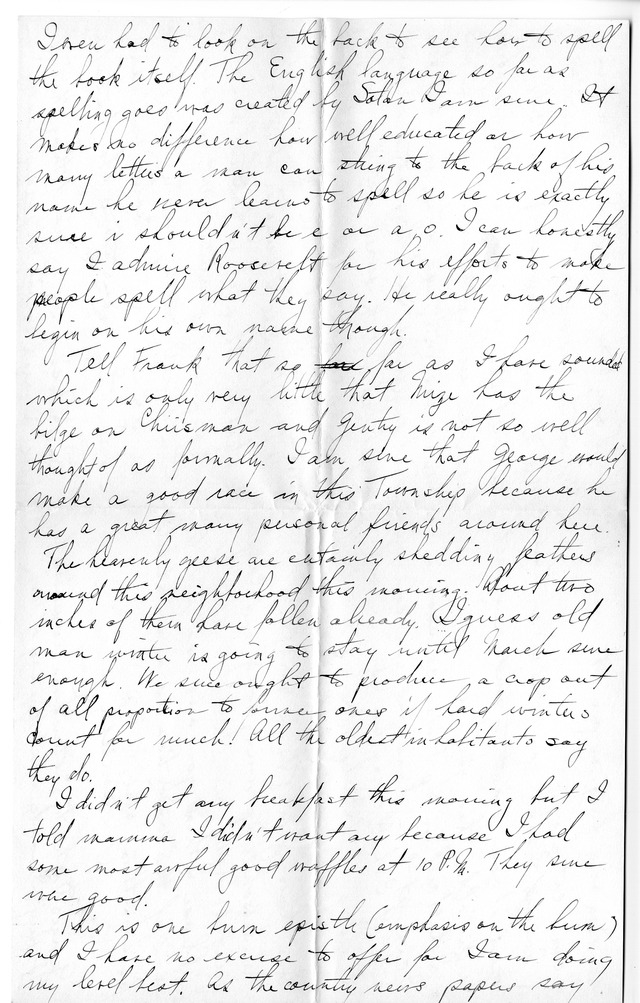 I even had to look on the back to see how to spell
the book itself. The English language so far as
spelling goes was created by Satan I am sure. It
makes no difference how well educated or how
many letters a man can string to the back of his
name he never learns to spell so he is exactly
sure i shouldn't be e or a o. I can honestly
say I admire Roosevelt for his efforts to make
people spell what they say. He really ought to
begin on his own name though.
Tell Frank that so far as I have sounded
which is only very little that Mize has the
bilge on Chrisman and Gentry is not so well
thought of as formally. I am sure that George would
make a good race in this Township because he
has a great many personal friends around here.
The heavenly geese are certainly shedding feathers
around this neighborhood this morning. About two
inches of them have fallen already. I guess old
man winter is going to stay until March sure
enough. We sure ought to produce a crop out
of all proportion to former ones if hard winters
count for much! All the oldest inhabitants say
they do.
I didn't get any breakfast this morning but I
told mamma I didn't want any because I had
some most awful good waffles at 10 P.M. They sure
were good.
This is one bum epistle (emphasis on the bum)
and I have no excuse to offer for I am doing
my level best. As the country news papers say